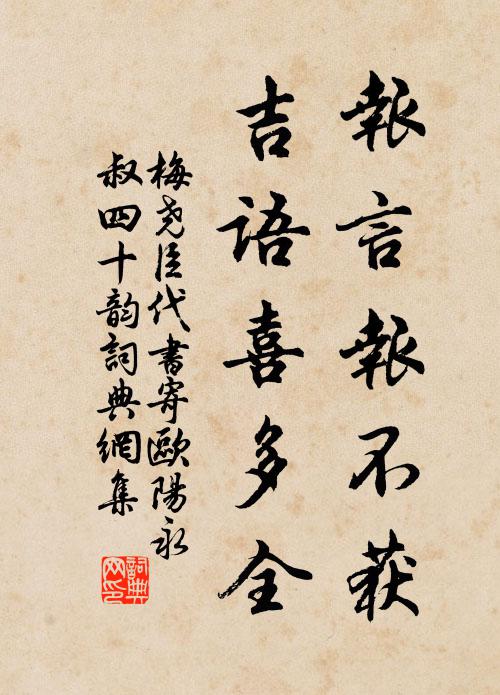 報言報不获
吉語喜多全
梅尧臣代書寄歐陽永
叔四十韵詞典網集
詞典网印